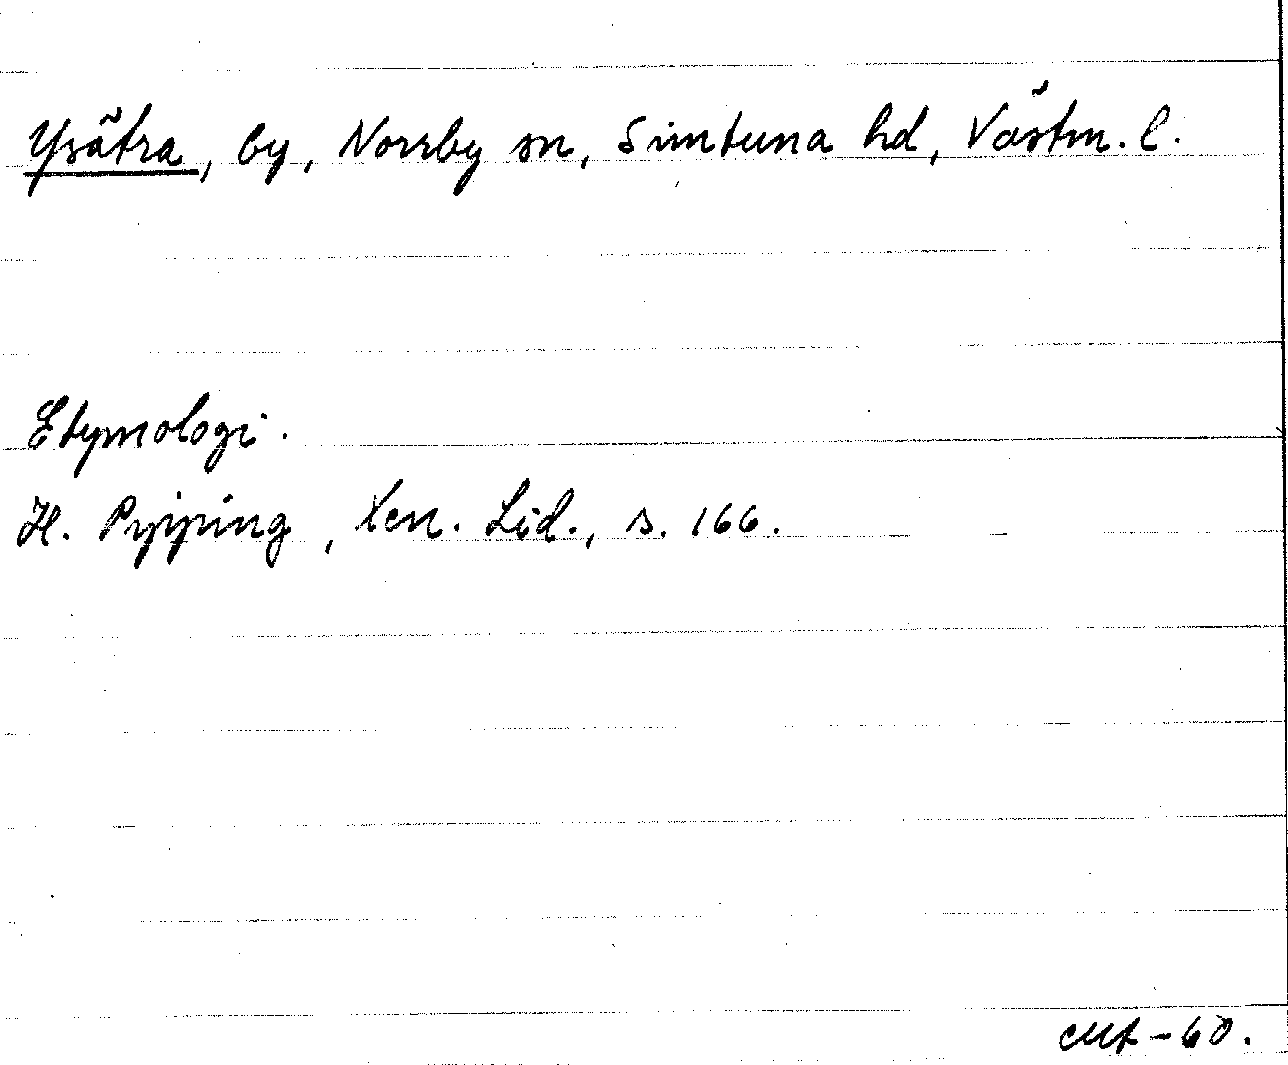 Ysätra, by, Norrby sn, Simtuna hd, Västm. l.
Etymologi.
H. Pipping, Xen. Lid., s. 166.
-60.